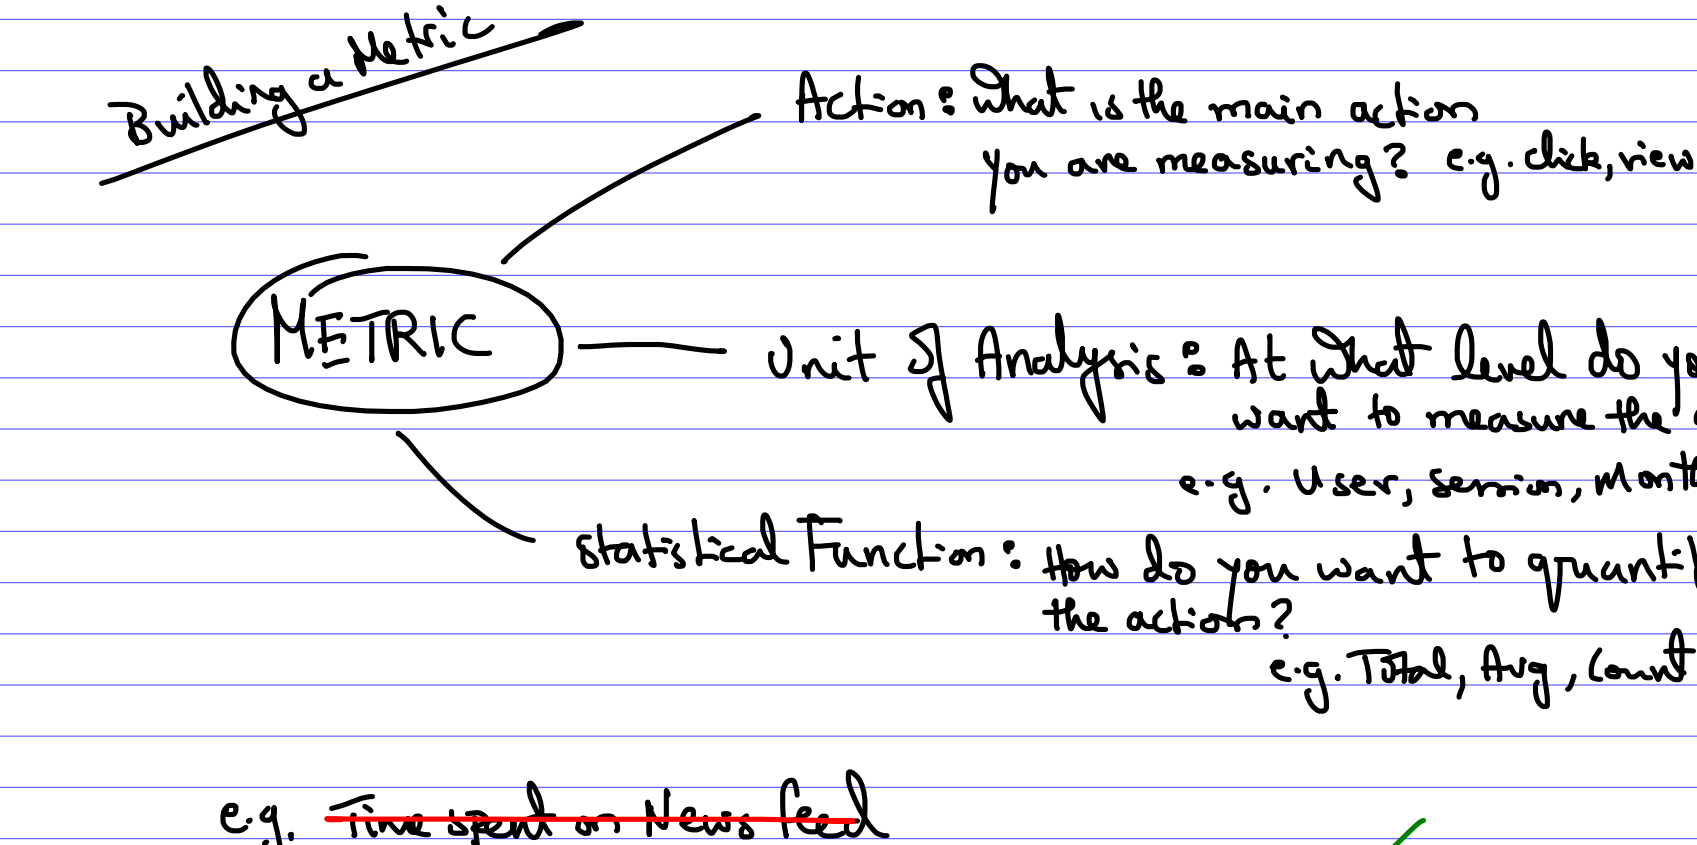 Building a Metric
Action: What is the main action
you are measuring? e.g. click, view
METRIC
Unit of Analysis: At what level do yo
want to measure the
e.g. User, session, Month
Statistical Function: How do you want to quantif
the action?
e.g. Total, Avg, Count
e.g. Time spent on News feed